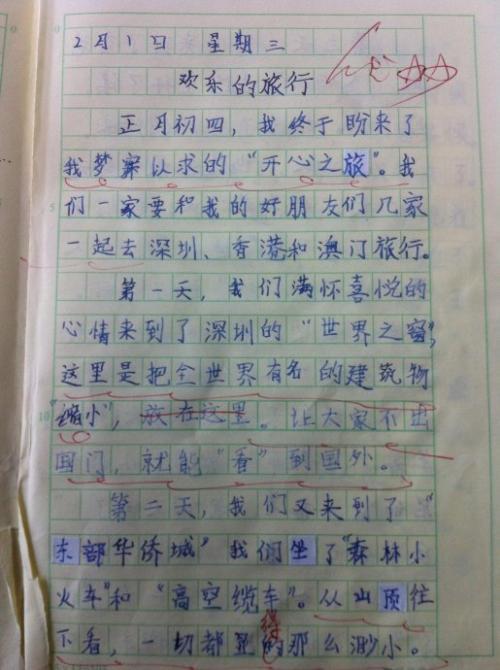 2月1日 星期三
优
欢乐的旅行
正月初四，我终于盼来了
我梦寐以求的“开心之旅”。我
们一家要和我的好朋友们几家
一起去深圳、香港和澳门旅行。
第一天，我们满怀喜悦的
心情来到了深圳的“世界之窗”，
这里是把全世界有名的建筑物
“缩小”，放在这里。让大家不出
国门，就能“看”到国外。
第二天，我们又来到了“
东部华侨城”我们坐了“森林小
火车”和“高空缆车”。从山顶往
下看，一切都显得那么渺小。